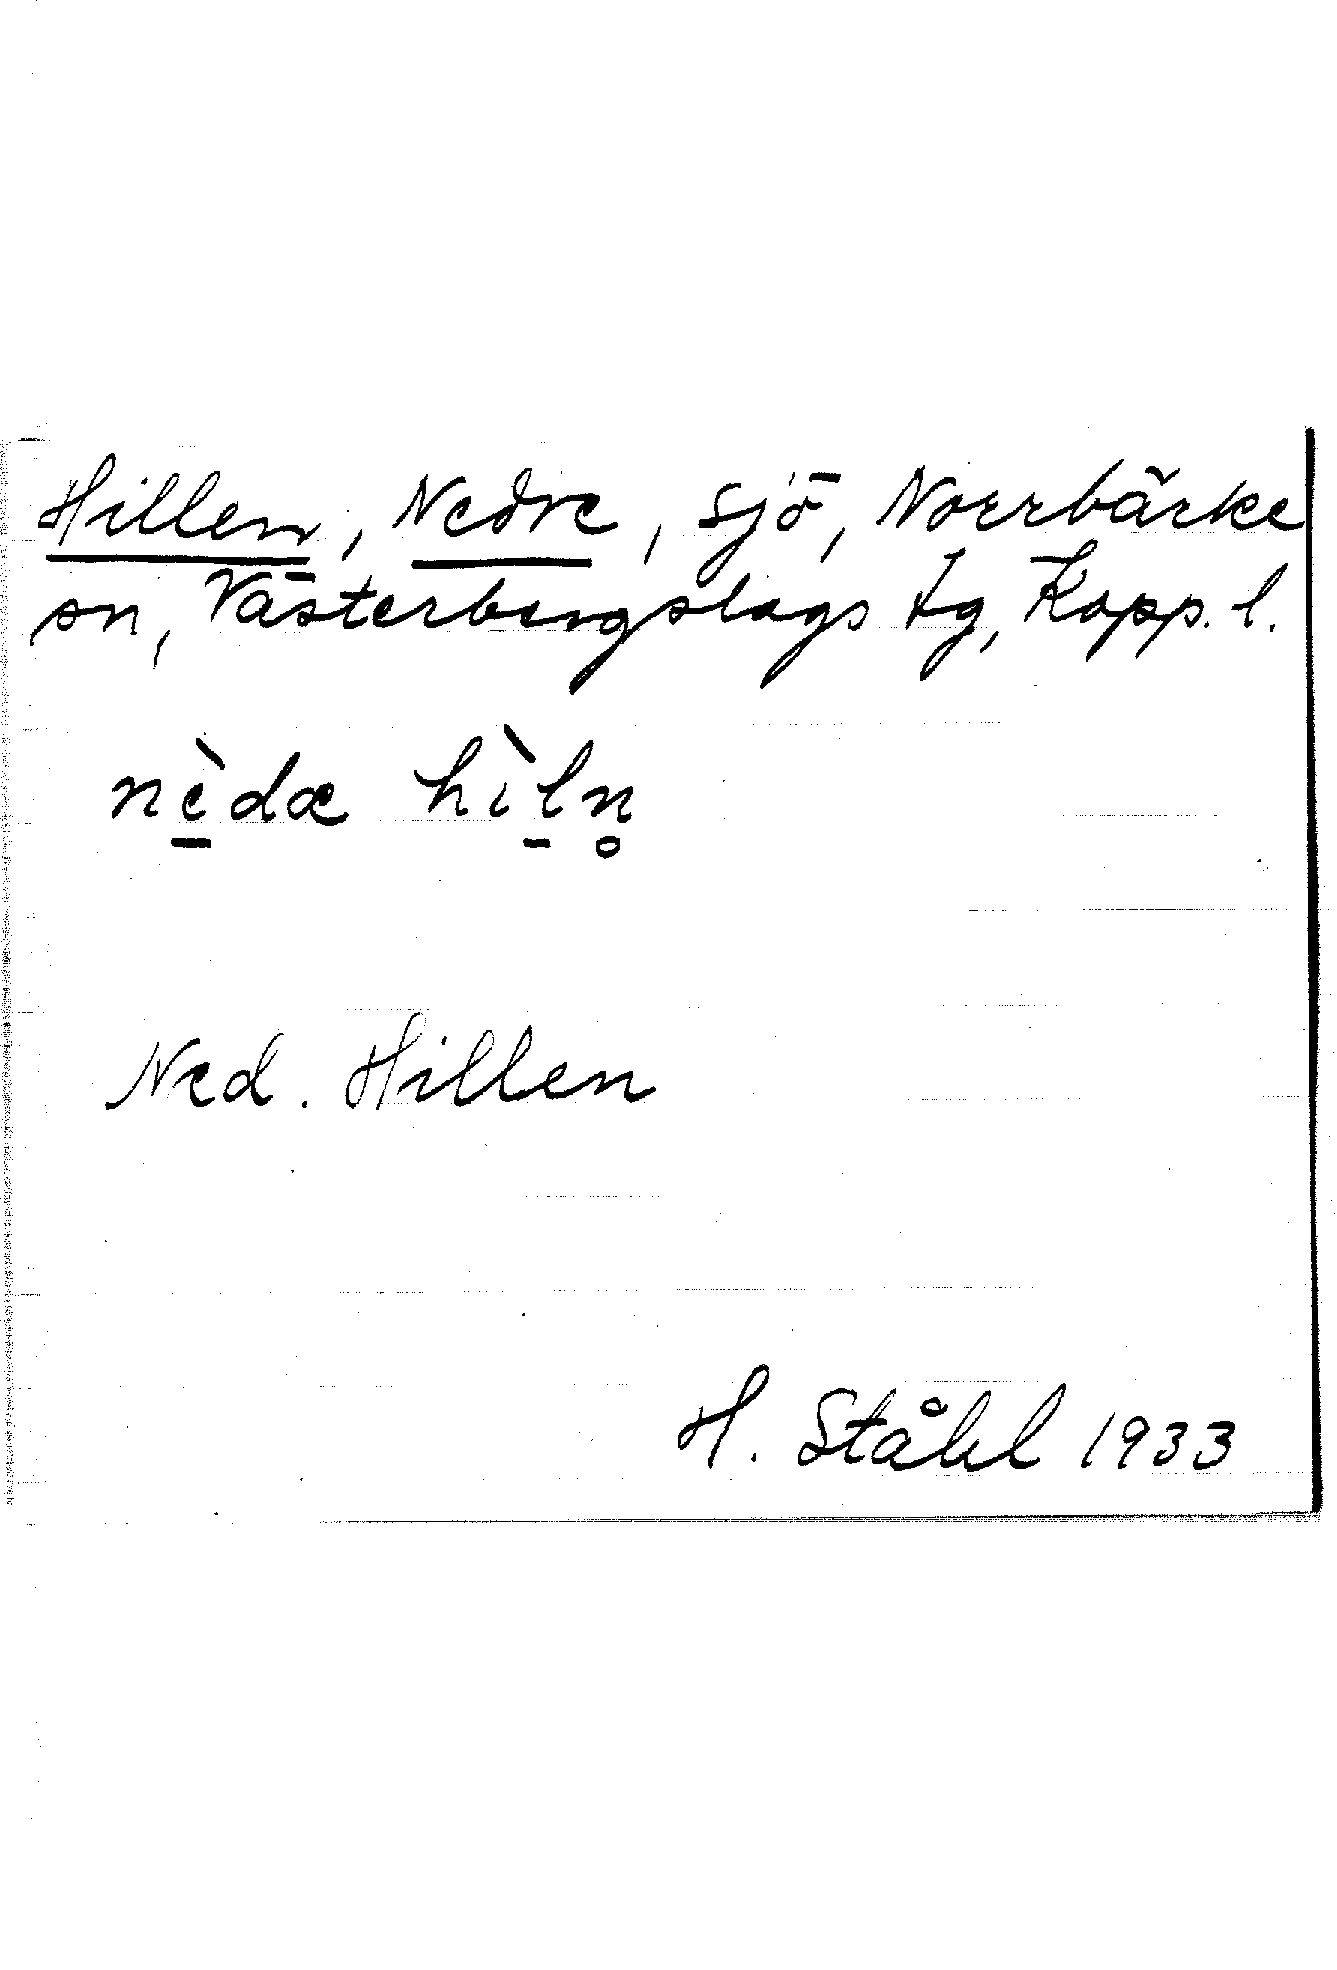 Hillen, Nedre, sjö, Norrbärke
sn, Västerbergslags tg, Kopp. l.
nè̠dæ hìl̠n̥
Ned. Hillen
H. Ståhl 1933